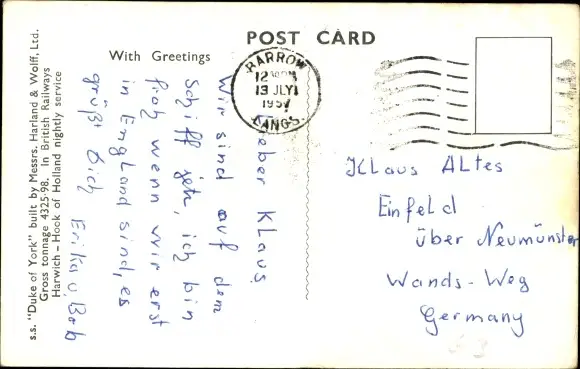 POST CARD
With Greetings
s.s. "Duke of York" built by Messrs. Harland & Wolff, Ltd.
Gross tonnage 4325·98. In British Railways
Harwich - Hook of Holland nightly service
BARROW
13 JLY
1957
LANCS.
Lieber Klaus
Wir sind auf dem
Schiff jetz, ich bin
froh wenn wir erst
in England sind, es
grüßt Dich
Erika u. Bob
Klaus Altes
Einfeld
über Neumünster
Wands-Weg
Germany